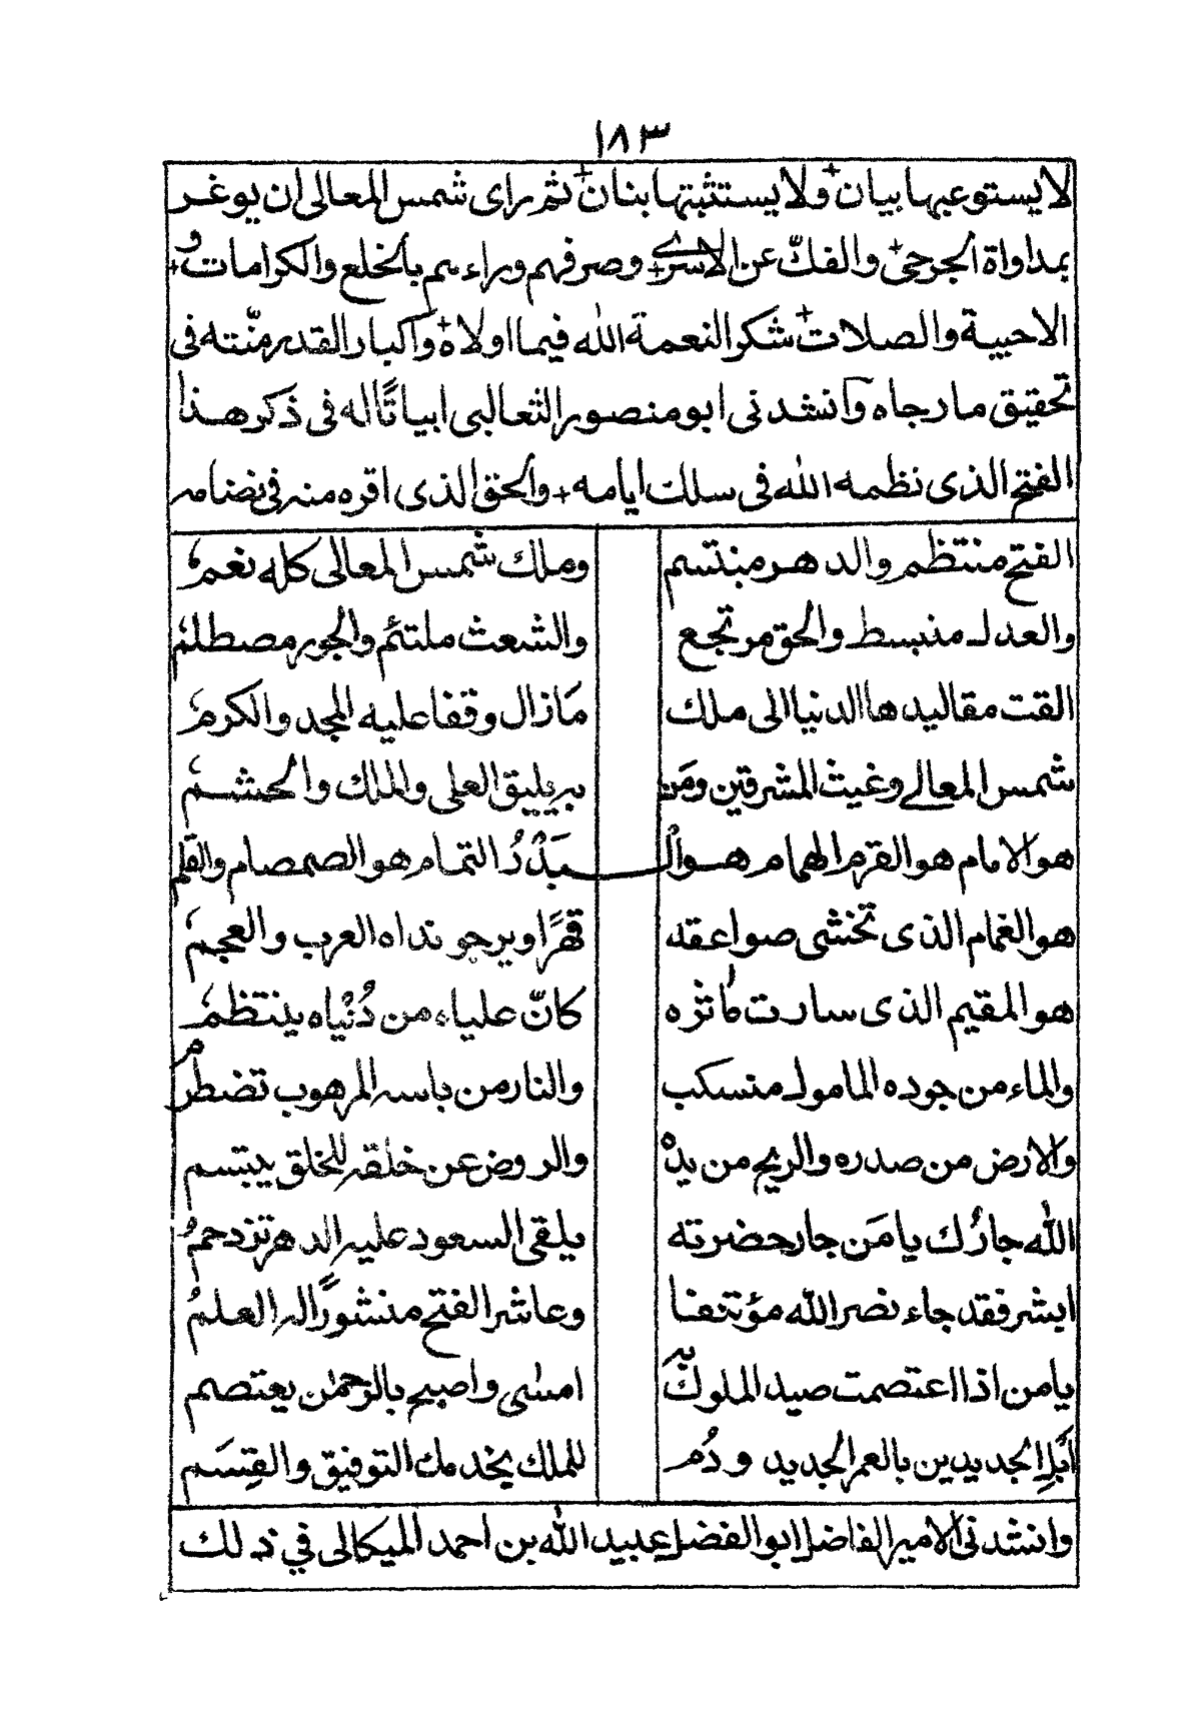 ١٨٣
لا يستوعبها بيان + ولا يستثبتها بنان + ثم راى شمس المعالى ان يوغر
بمداواة الجرحى + والفكّ عن الاسرى + وصرفهم وراءهم بالخلع والكرامات + و
الاحبية والصلات + شكر النعمة الله فيما اولاه + واكبار القدر منّته فى
تحقيق ما رجاه وانشدنى ابو منصور الثعالبى ابياتًا له فى ذكر هذا
الفتح الذى نظمه الله فى سلك ايامه + والحق الذى اقره منه فى نصابه
الفتح منتظم والدهر مبتسم وملك شمس المعالى كله نعم
والعدل منبسط والحق مرتجع والشعث ملتئم والجور مصطلم
القت مقاليدها الدنيا الى ملك مَازال وقفا عليه المجد والكرم
شمس المعالى وغيث المشرقين ومَن به يليق العلى والملك والحشم
هو الامام هو القرم الهمام هو الـ ـبَدْرُ التمام هو الصمصام والقلم
هو الغمام الذى تخشى صواعقه قهرًا ويرجو نداه العرب والعجم
هو المقيم الذى سارت مٰاثره كانّ علياء من دُنْياه ينتظم
والماء من جوده المامول منسكب والنار من باسه المرهوب تضطرم
والارض من صدره والريح من يدْه والروض عن خلقه للخلق يبتسم
الله جارُك يا مَن جار حضرته يلقى السعود عليه الدهر تزدحمُ
ابشر فقد جاء نصر الله مؤتنفا وعاشر الفتح منشورًا له العلمُ
يا من اذا اعتصمت صيد الملوك به امسٰى واصبح بالرحمٰن يعتصم
اَبْلِ الجديدين بالعمر الجديد ودُم للملك يخدمك التوفيق والقِسَم
وانشدنى الامير الفاضل ابو الفضل عبيد الله بن احمد الميكالى في ذلك